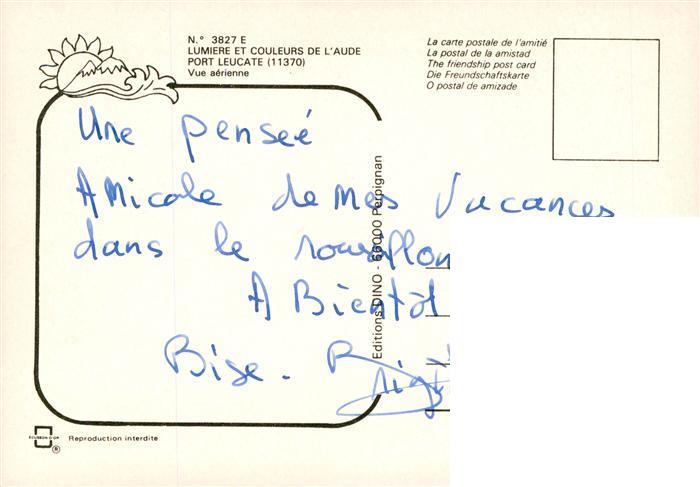 N.° 3827 E
LUMIERE ET COULEURS DE L'AUDE
PORT LEUCATE (11370)
Vue aérienne
La carte postale de l'amitié
La postal de la amistad
The friendship post card
Die Freundschaftskarte
O postal de amizade
Une penseé
Amicale de mes Vacances
dans le roussillon
A Bientôt
Bise.
Editions DINO - 66000 Perpignan
ECUSSON D'OR
® Reproduction interdite